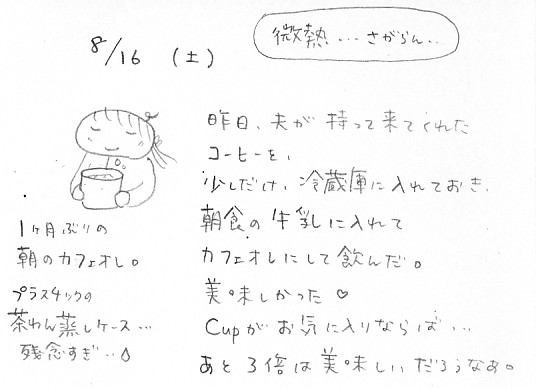 8/16 (土)
微熱...さがらん..
昨日、夫が持って来てくれた
コーヒーを、
少しだけ、冷蔵庫に入れておき、
朝食の牛乳に入れて
カフェオレにして飲んだ。
美味しかった♡
Cupがお気に入りならば...
あと3倍は美味しいだろうなぁ。
1ヶ月ぶりの
朝のカフェオレ。
プラスチックの
茶わん蒸しケース...
残念すぎ..